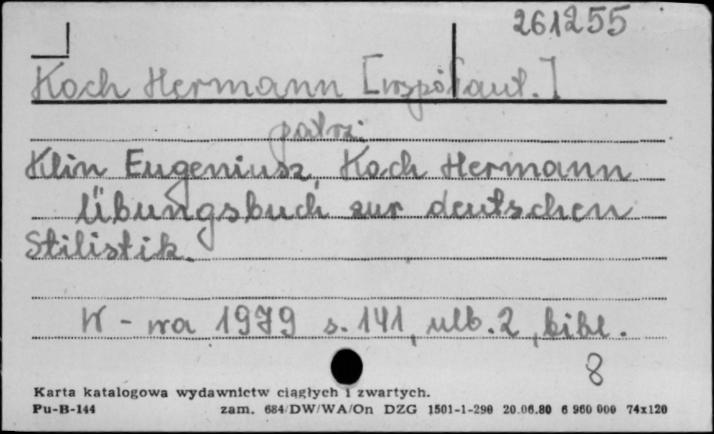 261255
Koch Hermann [współaut.]
patrz:
Klin Eugeniusz, Koch Hermann
Übungsbuch zur deutschen
Stilistik.
W-wa 1979 s. 141, ulb. 2, bibl.
8
Karta katalogowa wydawnictw ciągłych i zwartych.
Pu-B-144 zam. 684/DW/WA/On DZG 1501-1-290 20.06.80 6 960 000 74x120